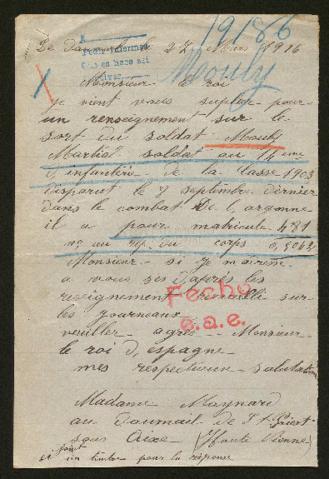 19186
Le Daumail le 27 Mars 1916
Mouby
Monsieur le roi
je vient vous suplier pour
un renseignement sur le
sort du soldat Mouby
Martial soldat au 14 eme
d'infanterie de la classe 1903
disparut le 7 septembre dernier
dans le combat de l'argonne
il a pour matricule 481
au corps
Monsieur si je
a vous ses d'après les
sur
les journeaux
veuiller agré Monsieur
le roi d'espagne
mes respectieux salutation
Fecho
e.a.e.
Madame Maynard
au Daumail de St Priest
sous Aixe (Haute Vienne)
ci joint un timbre pour la réponse